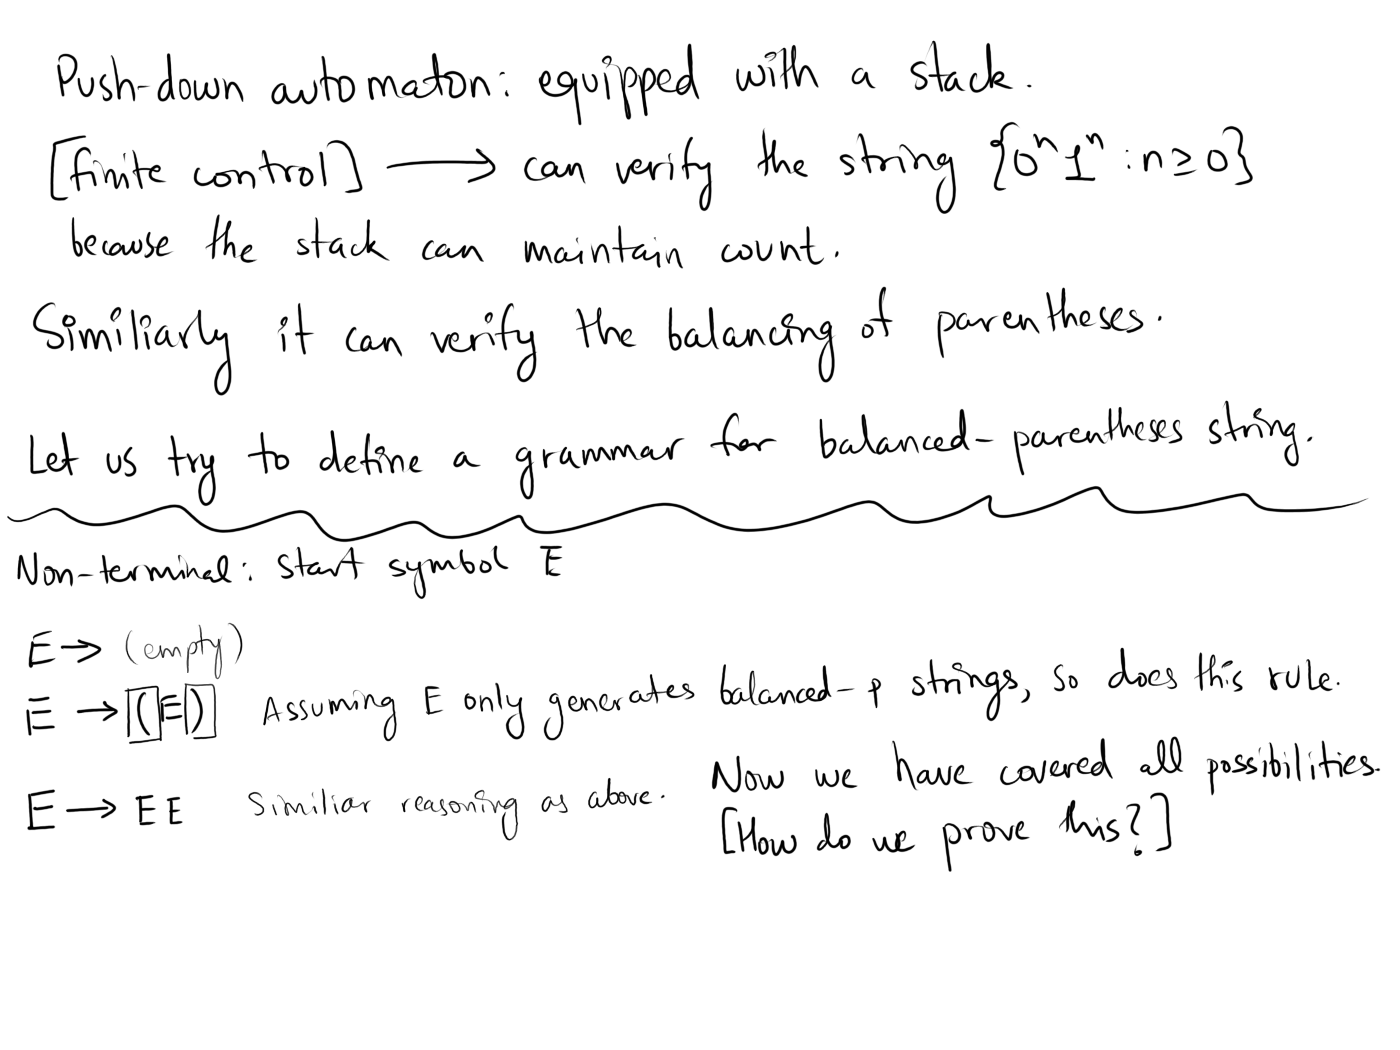 Push-down automaton: equipped with a stack.
[finite control] → can verify the string {0ⁿ1ⁿ : n ≥ 0}
because the stack can maintain count.
Similiarly it can verify the balancing of parentheses.
Let us try to define a grammar for balanced-parentheses string.
Non-terminal: start symbol E
E → (empty)
E → (E) Assuming E only generates balanced-p strings, so does this rule.
E → E E Similiar reasoning as above.
Now we have covered all possibilities.
[How do we prove this?]